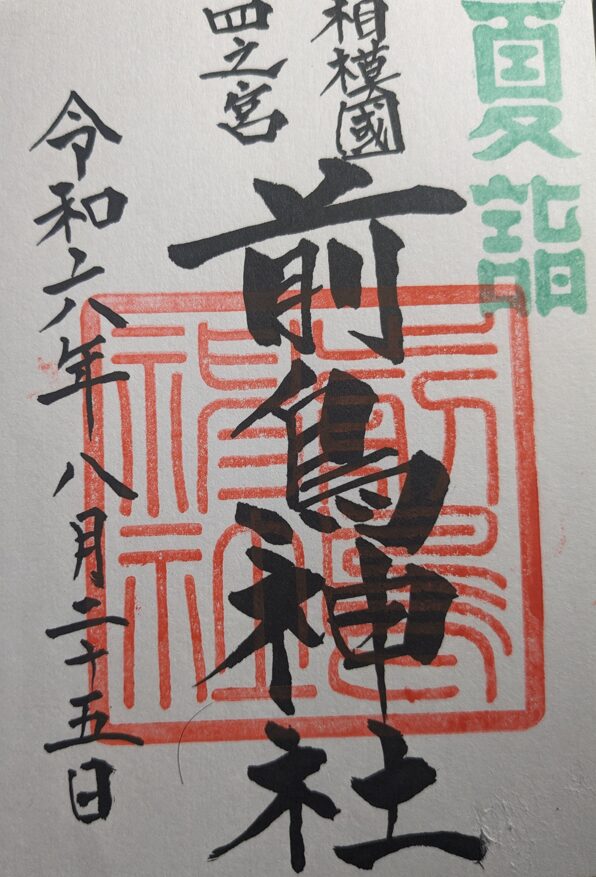 夏詣
相模國
四之宮
前鳥神社
令和六年八月二十五日
前鳥
神社